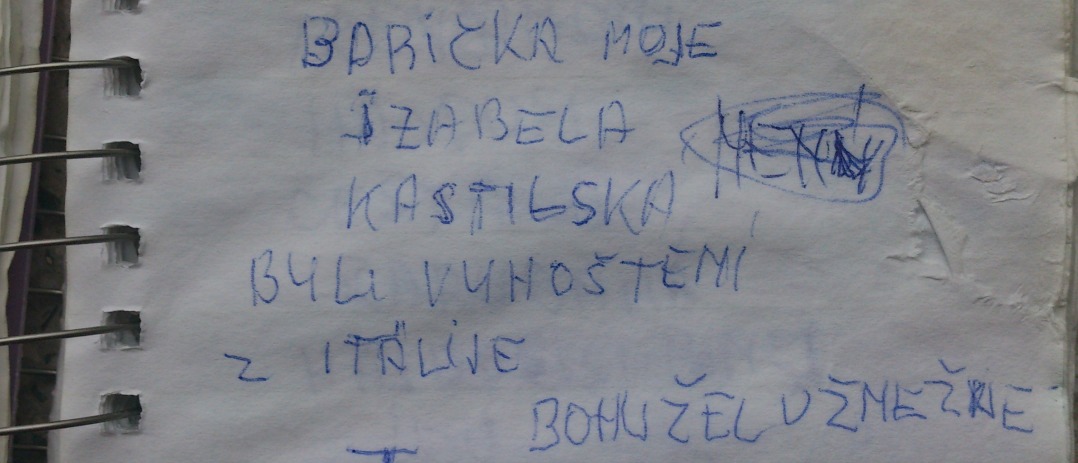 BARIČKA MOJE
IZABELA
KASTILSKA
BYLI VYHOŠTĚNÍ
Z ITÁLIJE
BOHUŽEL UŽ NEŽIJE